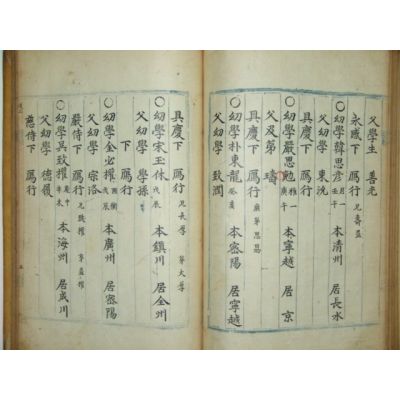 父學生 善元
永感下 鴈行 兄壽益
○幼學韓思彦 君一 壬午 本淸州 居長水
父幼學 東沈
具慶下 鴈行
○幼學嚴思勉 稚一 庚午 本寧越 居京
父及第 璹
具慶下 鴈行
○幼學朴東龍 癸亥 本密陽 居寧越
父幼學 致潤
具慶下 鴈行
○幼學宋玉休 戊辰 本鎭川 居全州
父幼學 學孫
下 鴈行
○幼學金必擢 戊辰 本廣州 居密陽
父幼學 宗洛
嚴侍下 鴈行
○幼學吳致擢 辛未 本海州 居咸川
父幼學 德履
慈侍下 鴈行